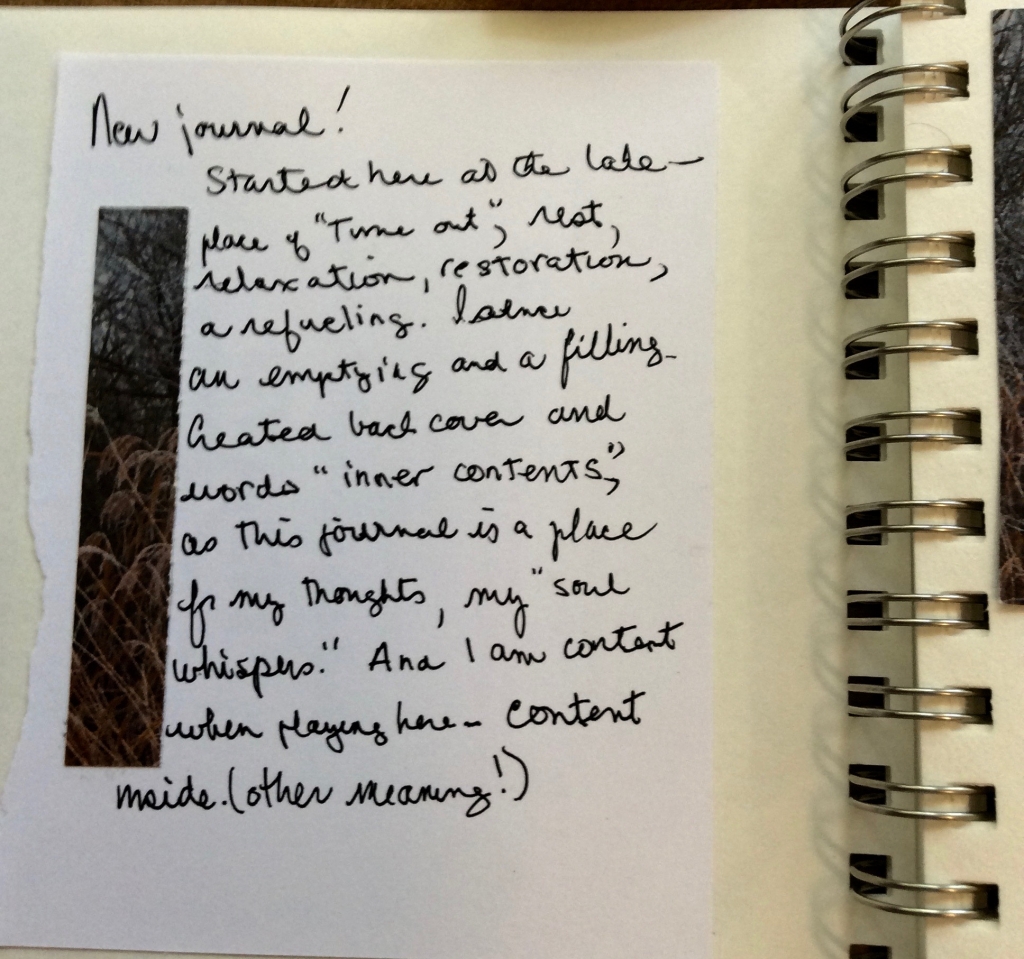 New journal!
Started here at the lake—
place of "Time out", rest,
relaxation, restoration,
a refueling.
an emptying and a filling.
Created back cover and
words "inner contents",
as this journal is a place
for my thoughts, my "soul
whispers." And I am content
when playing here - content
inside. (other meaning!)